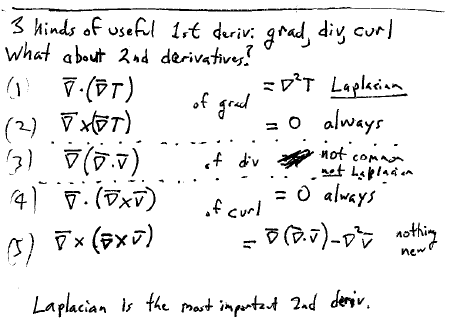 3 kinds of useful 1st deriv: grad, div, curl
What about 2nd derivatives?
(1) ∇̅·(∇̅T) of grad = ∇²T Laplacian
(2) ∇̅×(∇̅T) = 0 always
(3) ∇̅(∇̅·v̅) of div not common
not Laplacian
(4) ∇̅·(∇̅×v̅) of curl = 0 always
(5) ∇̅×(∇̅×v̅) = ∇̅(∇̅·v̅)-∇²v̅ nothing new
Laplacian is the most important 2nd deriv.